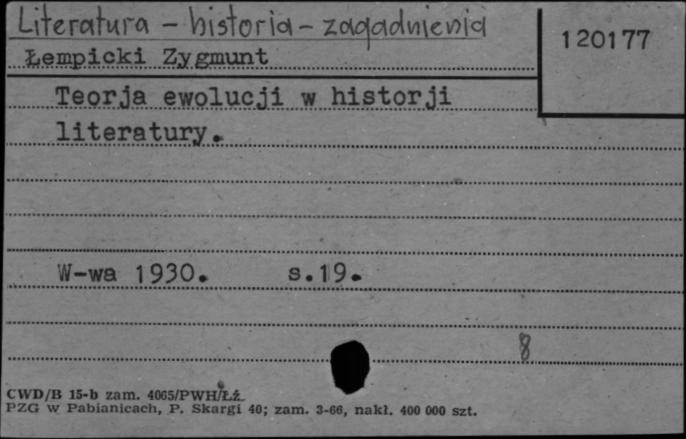 Literatura - historia - zagadnienia
120177
Łempicki Zygmunt
Teorja ewolucji w historji
literatury.
W-wa 1930. s.19.
8
CWD/B 15-b zam. 4065/PWH/Łź.
PZG w Pabianicach, P. Skargi 40; zam. 3-66, nakł. 400 000 szt.